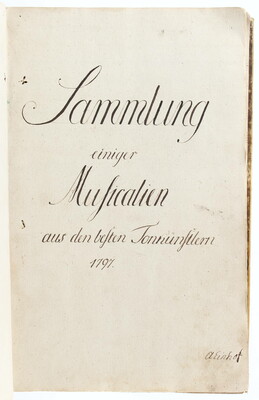 Sammlung
einiger
Muſicalien
aus den beſten Tonkünſtlern
1797.